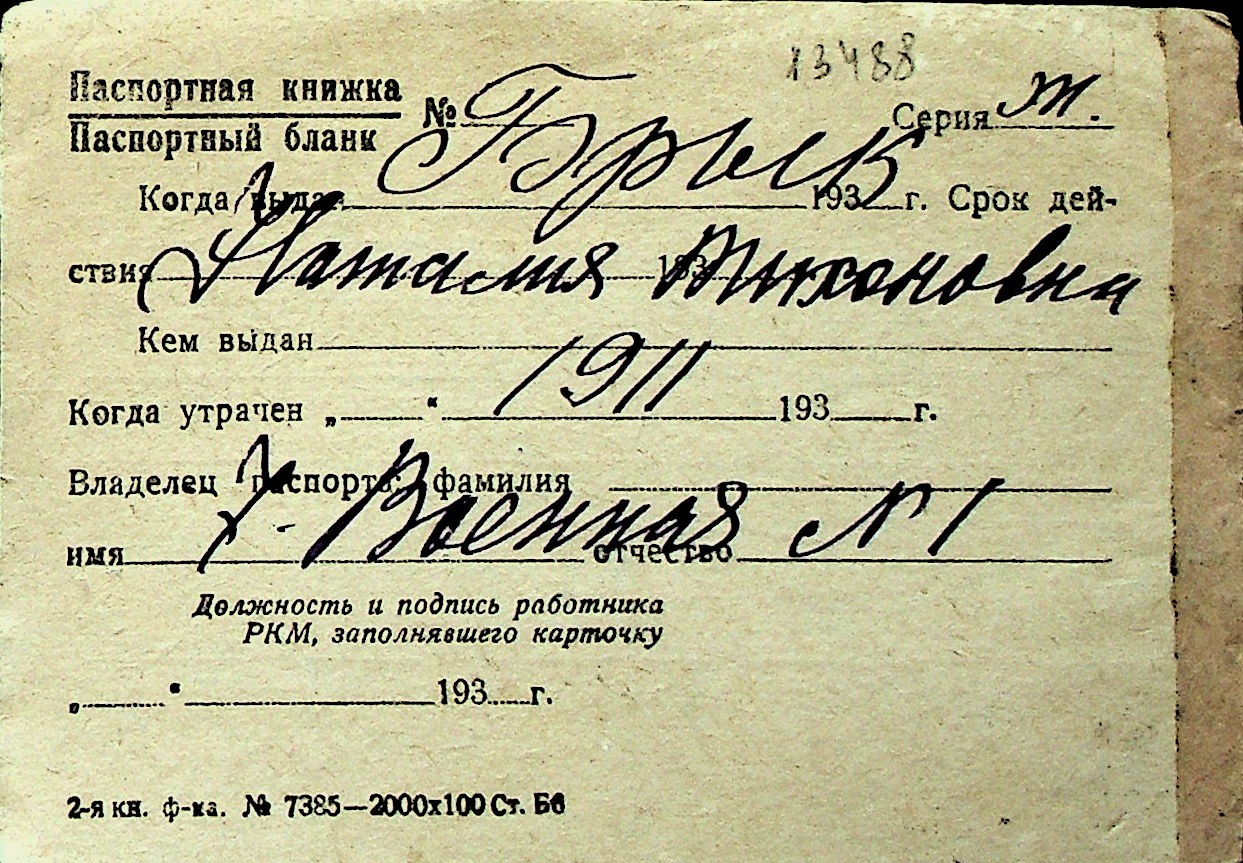 13488
Паспортная книжка
Паспортный бланк № Серия т.
Грыск
Когда выдан 193 г. Срок дей-
ствия 193
Наталия Тихоновна
Кем выдан
1911
Когда утрачен „ “ 193 г.
Владелец паспорта: фамилия
Военная N 1
имя отчество
Должность и подпись работника
РКМ, заполнявшего карточку
„ “ 193 г.
2-я кн. ф-ка. № 7385—2000х100 Ст. Бб